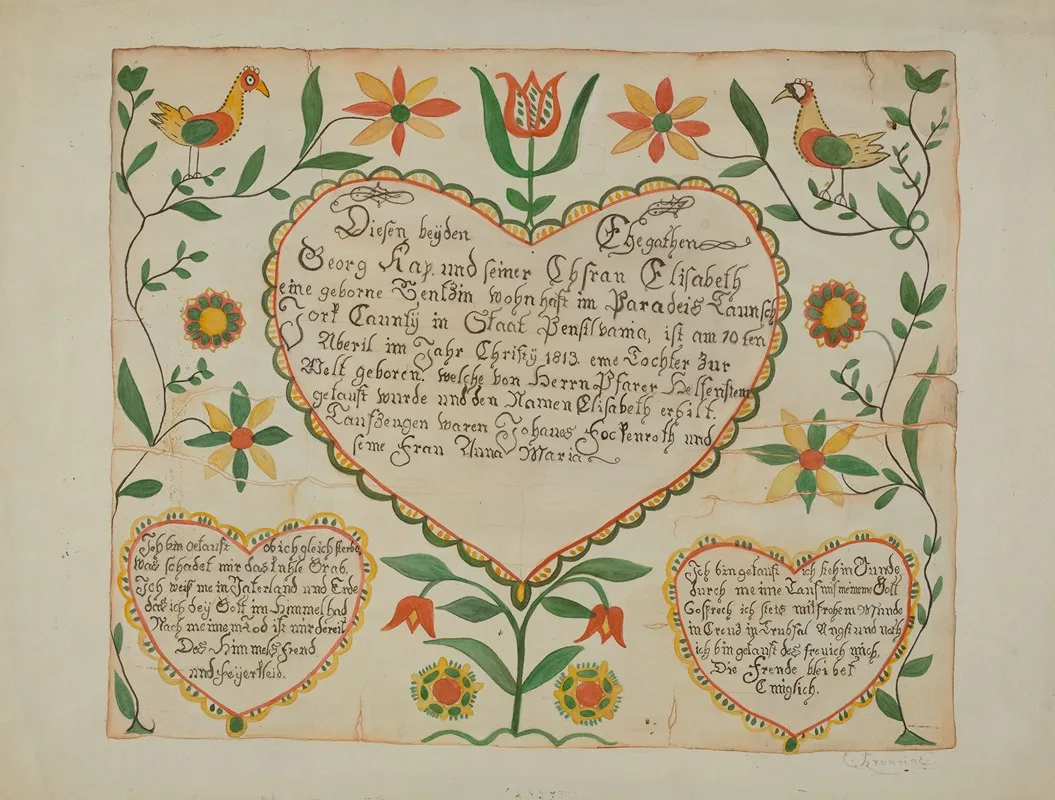 Diesen beyden Ehegathen
Georg Kap. und seiner Ehfrau Elisabeth
eine geborne Bentzin wohnhaft im Paradeis Taunsch
York Caunty in Staat Pensilvania, ist am 10 ten
Aberil im Jahr Christy 1813. eine Tochter zur
Welt geboren. welche von Herrn Pfarer Helfenstein
getauft wurde und den Namen Elisabeth erhilt.
Taufzeugen waren Johanes Fockenroth und
seine Frau Anna Maria
Ich bin getauft ob ich gleich sterbe
Was schadet mir das kühle Grab.
Ich weiß mein Vaterland und Erbe
das ich bey Gott im Himmel hab
Nach meinem Tod ist mir bereit
Des Himmels freud
und feyerkleid.
Ich bin getauft ich steh im Bunde
durch meine Tauf mit meinem Gott
So sprech ich stets mit frohem Munde
in Creuz in Trubsal Angst und noth
ich bin getauft des freu ich mich,
Die Freude bleibet
Ewiglich.